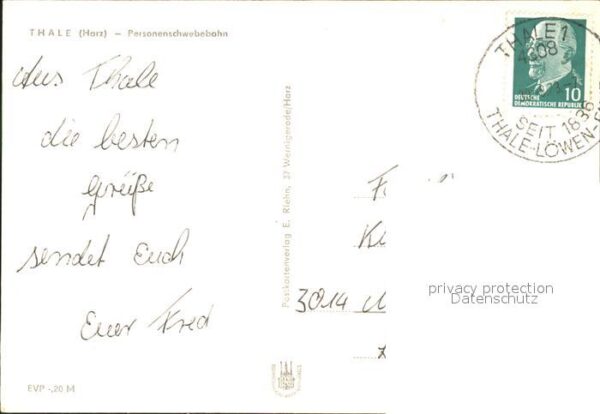 THALE (Harz) — Personenschwebebahn
Aus Thale
die besten
Grüße
sendet Euch
Euer Fred
EVP -,20 M
Postkartenverlag E. Riehn, 37 Wernigerode/Harz
THALE 1
4308
SEIT 1836
THALE-LÖWEN-
10
DEUTSCHE
DEMOKRATISCHE REPUBLIK
3014
privacy protection
Datenschutz